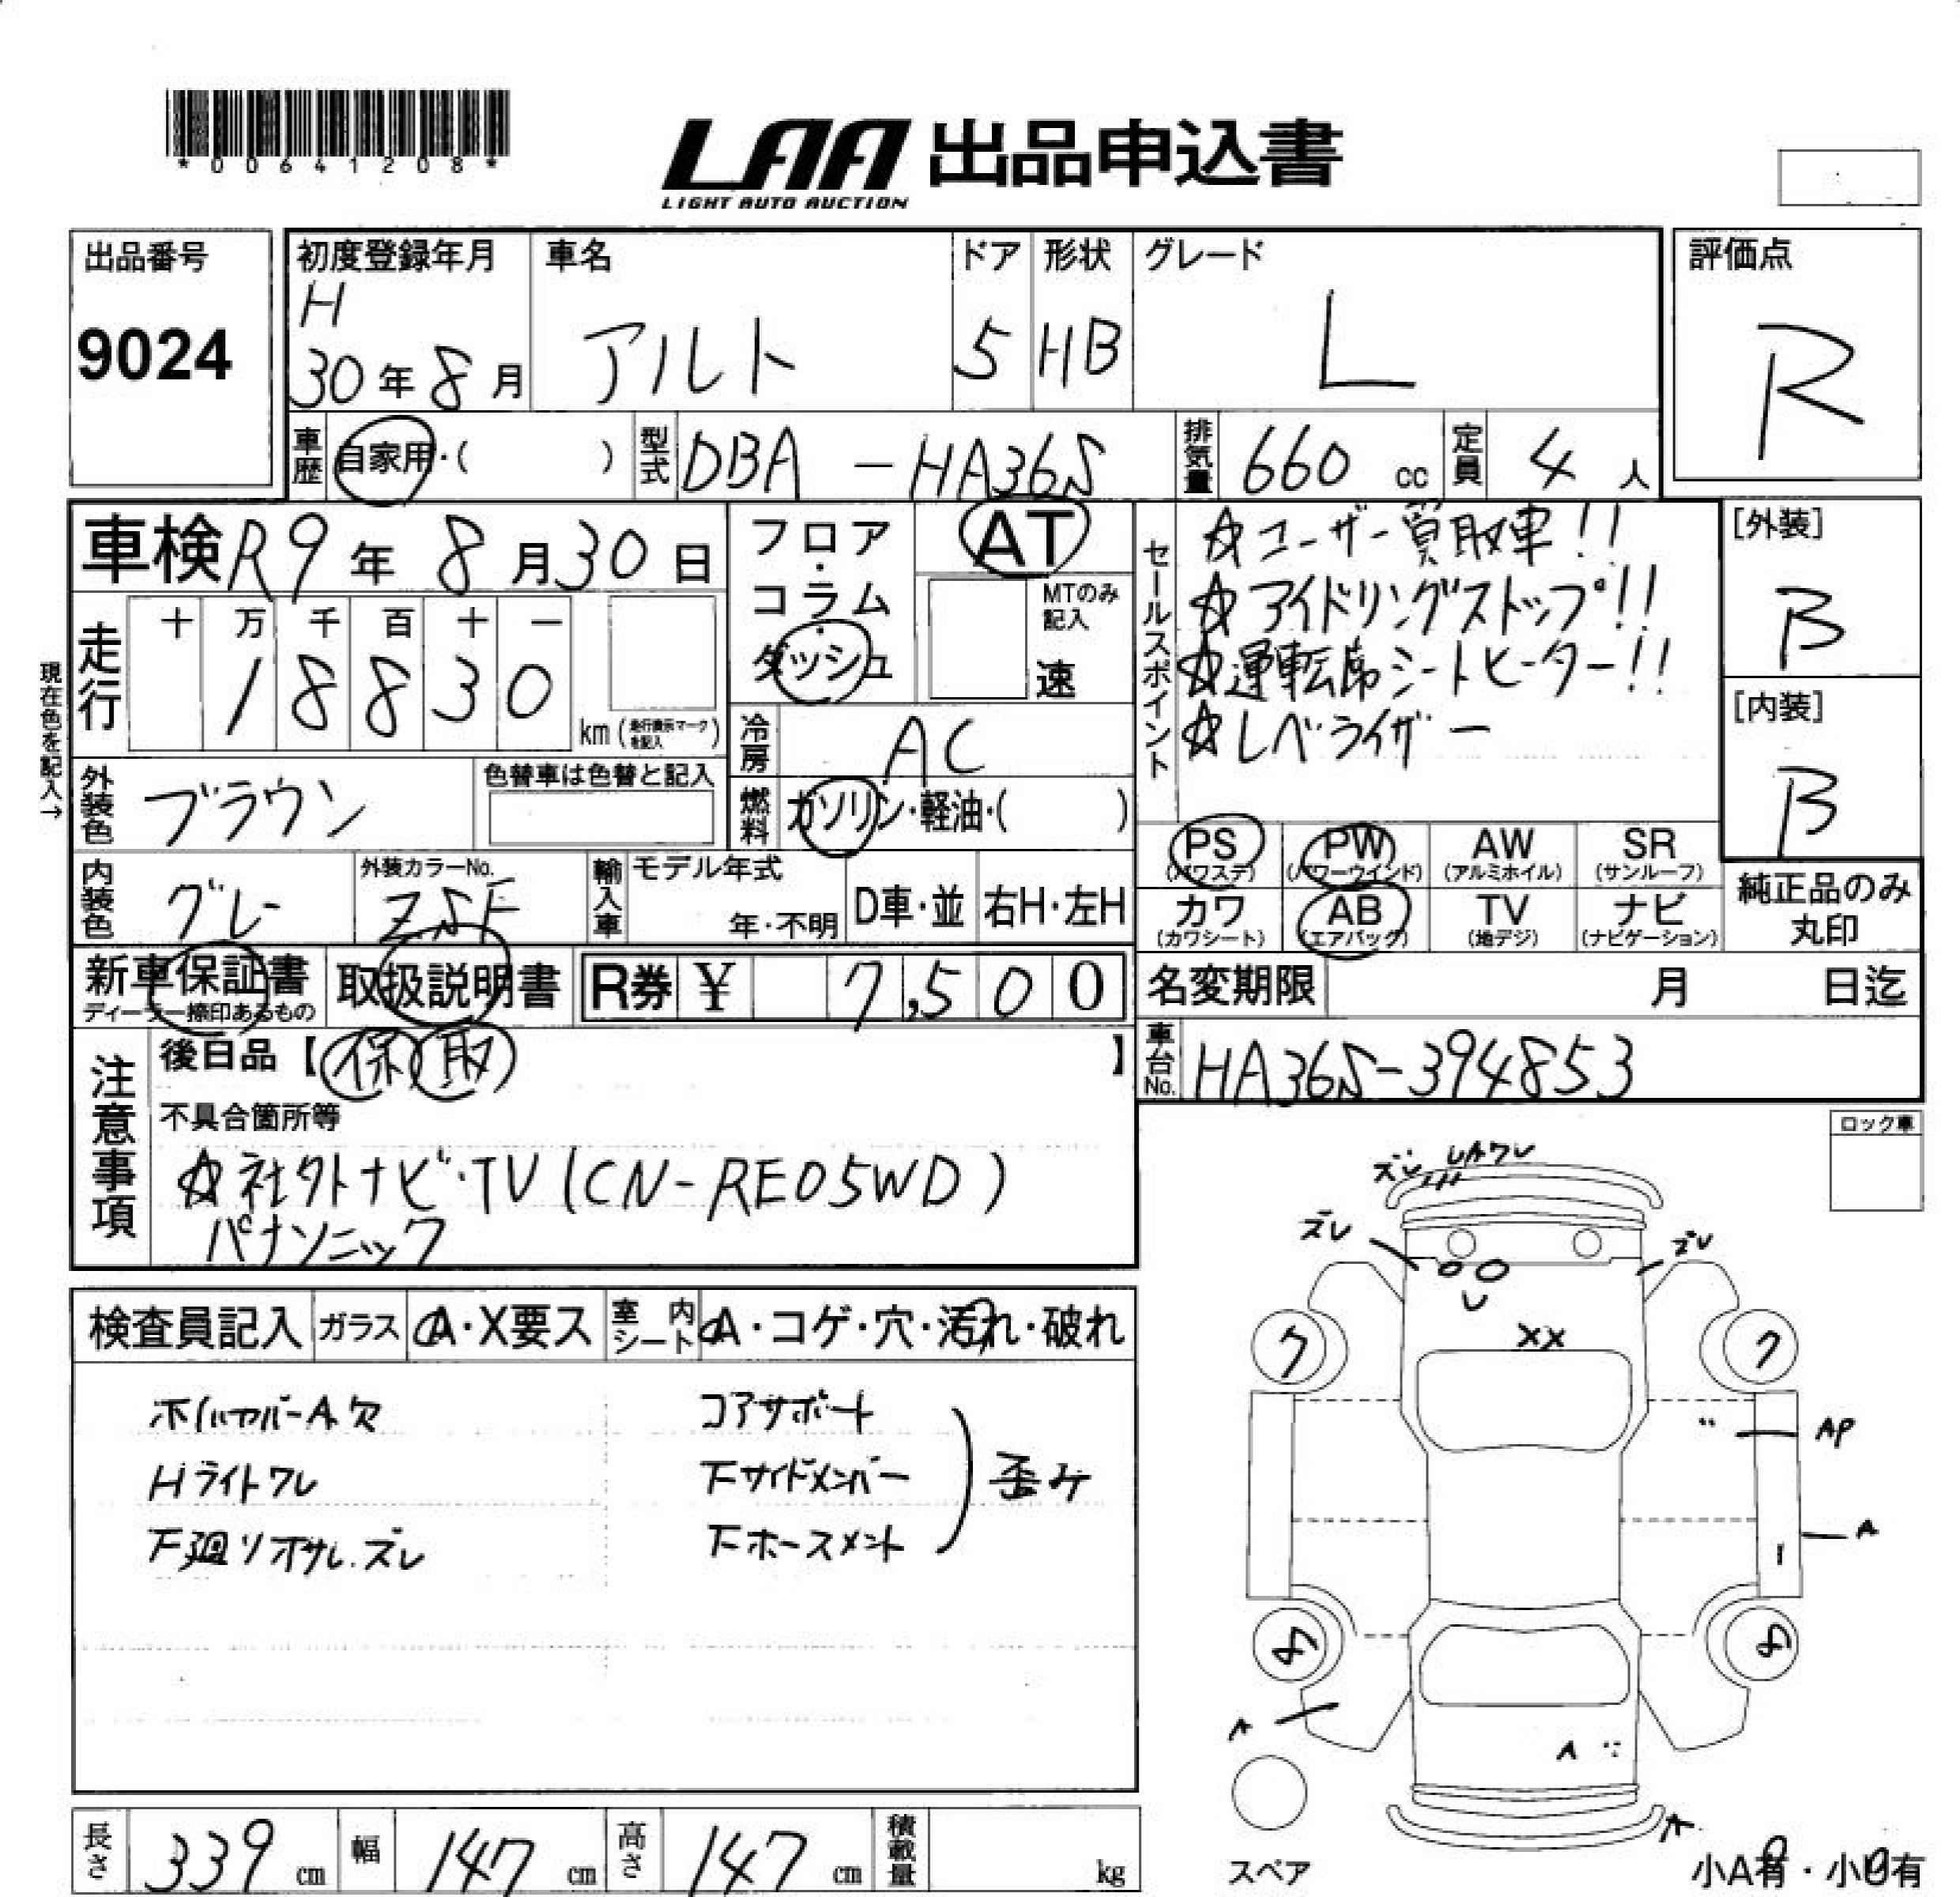 *00641208*
LAA 出品申込書
LIGHT AUTO AUCTION
出品番号
9024
初度登録年月
H
30年8月
車名
アルト
ドア
5
形状
HB
グレード
L
評価点
R
車歴
自家用・( )
型式
DBA-HA36S
排気量
660 cc
定員
4 人
車検 R9年8月30日
フロア・コラム・ダッシュ
AT
MTのみ記入
速
セールスポイント
☆ユーザー買取車!!
☆アイドリングストップ!!
☆運転席シートヒーター!!
☆レベライザー
[外装]
B
[内装]
B
現在色を記入→
走行
十 万 千 百 十 一
1 8 8 3 0
km (走行表示マークを記入)
冷房
AC
外装色
ブラウン
色替車は色替と記入
燃料
ガソリン・軽油・( )
PS (パワステ)
PW (パワーウインド)
AW (アルミホイル)
SR (サンルーフ)
カワ (カワシート)
AB (エアバッグ)
TV (地デジ)
ナビ (ナビゲーション)
純正品のみ丸印
内装色
グレー
外装カラーNo.
ZSF
輸入車
モデル年式
年・不明
D車・並
右H・左H
新車保証書
ディーラー捺印あるもの
取扱説明書
R券 ¥ 7,500
名変期限 月 日迄
車台No.
HA36S-394853
注意事項
後日品【保 取】
不具合箇所等
☆社外ナビ・TV(CN-RE05WD)
パナソニック
ロック車
検査員記入
ガラス
A・X要ス
室内シート
A・コゲ・穴・汚れ・破れ
ホイルカバーA、欠
Hライトワレ
下廻りオサレ、ズレ
コアサポート
Fサイドメンバー
Fホースメント
歪み
ズレ
UAワレ
ズレ
ズレ
U
XX
7
7
AP
A
8
8
A
A
A
スペア
小A有・小U有
長さ
339 cm
幅
147 cm
高さ
147 cm
積載量
kg